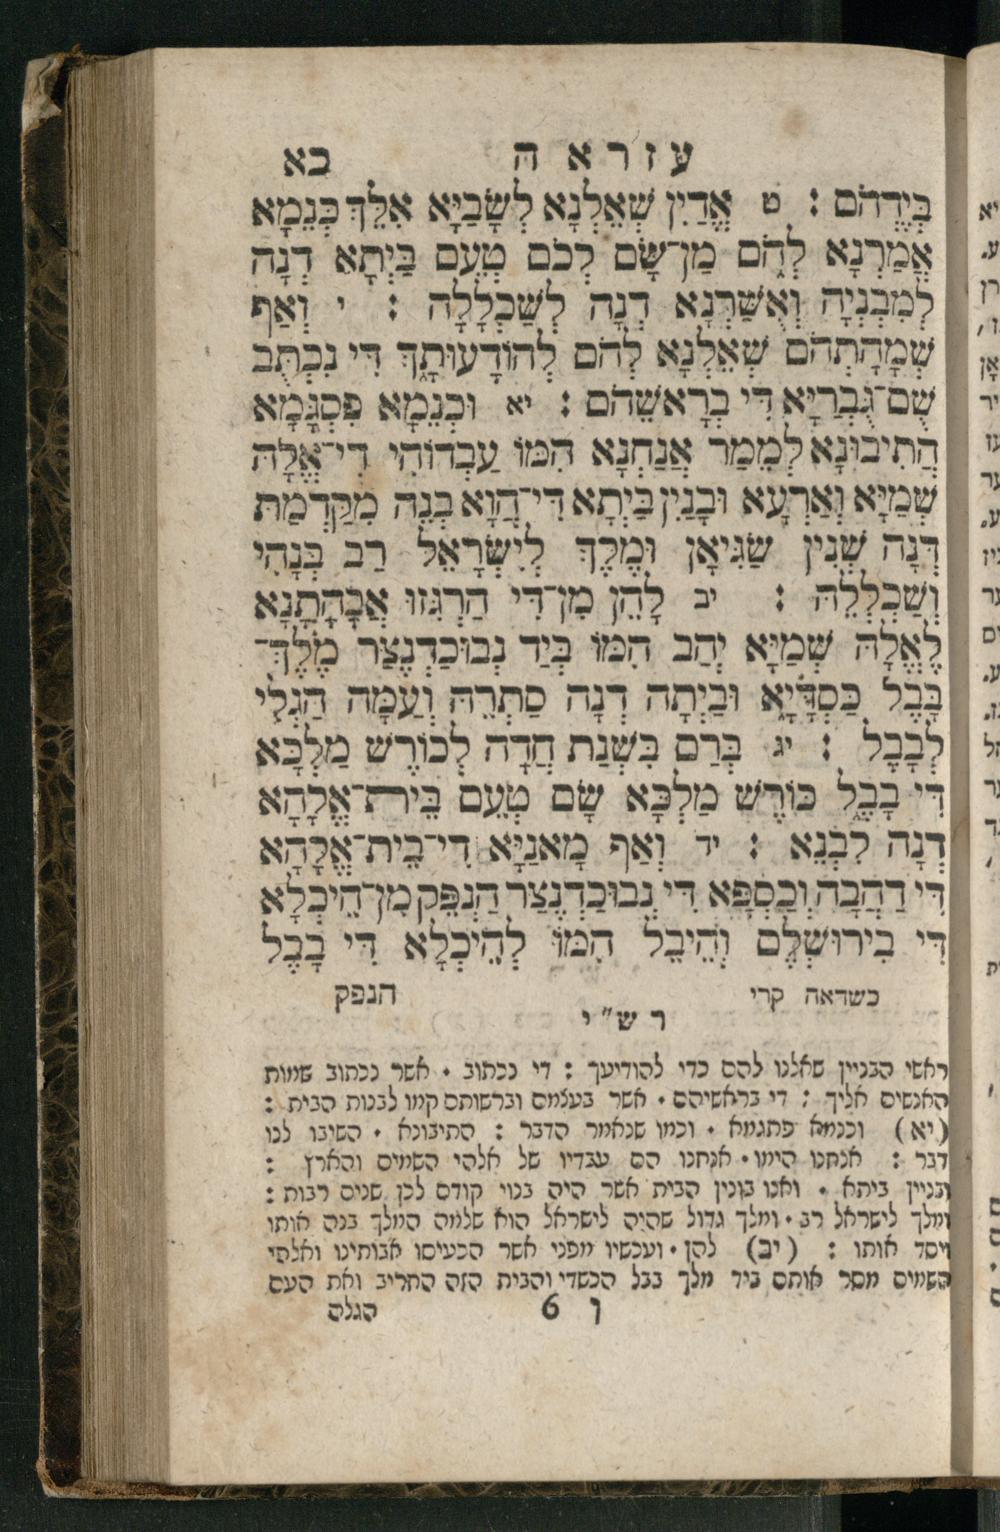 עזרא ה כא
בְּיֶדְהֹם : ט אֱדַיִן שְׁאֵלְנָא לְשָׂבַיָּא אִלֵּךְ כְּנֵמָא
אֲמַרְנָא לְהֹם מַן־שָׂם לְכֹם טְעֵם בַּיְתָא דְנָה
לְמִבְנְיָה וְאֻשַּׁרְנָא דְנָה לְשַׁכְלָלָה : י וְאַף
שְׁמָהָתְהֹם שְׁאֵלְנָא לְהֹם לְהוֹדָעוּתָךְ דִּי נִכְתֻּב
שֻׁם־גֻּבְרַיָּא דִּי בְרָאשֵׁהֹם : יא וּכְנֵמָא פִתְגָמָא
הֲתִיבוּנָא לְמֵמַר אֲנַחְנָא הִמּוֹ עַבְדוֹהִי דִי־אֱלָהּ
שְׁמַיָּא וְאַרְעָא וּבָנַיִן בַּיְתָא דִּי־הֲוָא בְנֵה מִקַּדְמַת
דְּנָה שְׁנִין שַׂגִּיאָן וּמֶלֶךְ לְיִשְׂרָאֵל רַב בְּנָהִי
וְשַׁכְלְלֵהּ : יב לָהֵן מִן־דִּי הַרְגִּזוּ אֲבָהֳתָנָא
לֶאֱלָהּ שְׁמַיָּא יְהַב הִמּוֹ בְּיַד נְבוּכַדְנֶצַּר מֶלֶךְ־
בָּבֶל כַּסְדָּיָא וּבַיְתָה דְנָה סַתְרֵהּ וְעַמָּה הַגְלִי
לְבָבֶל : יג בְּרַם בִּשְׁנַת חֲדָה לְכוֹרֶשׁ מַלְכָּא
דִּי בָבֶל כּוֹרֶשׁ מַלְכָּא שָׂם טְעֵם בֵּית־אֱלָהָא
דְנָה לִבְנֵא : יד וְאַף מָאנַיָּא דִי־בֵית־אֱלָהָא
דִּי דַהֲבָה וְכַסְפָּא דִּי נְבוּכַדְנֶצַּר הַנְפֵּק מִן־הֵיכְלָא
דִּי בִירוּשְׁלֶם וְהֵיבֵל הִמּוֹ לְהֵיכְלָא דִּי בָבֶל
כשדאה קרי הנפק
רש״י
ראשי הבניין שאלנו להם כדי להודיעך : די נכתוב • אשר נכתוב שמות
האנשים אליך : די בראשיהם • אשר בעצמם וברשותם קמו לבנות הבית :
(יא) וכנמא פתגמא • וכמו שנאמר הדבר : התיבונא • השיבו לנו
דבר : אנחנו הימו • אנחנו הם עבדיו של אלהי השמים והארץ :
ובניין ביתא • ואנו בונין הבית אשר היה בנוי קודם לכן שנים רבות :
ומלך לישראל רב • ומלך גדול שהיה לישראל הוא שלמה המלך בנה אותו
ויסד אותו : (יב) להן • ועכשיו מפני אשר הכעיסו אבותינו ואלהי
השמים מסר אותם ביד מלך בבל הכשדי והבית הזה החריב ואת העם
ו 6 הגלה